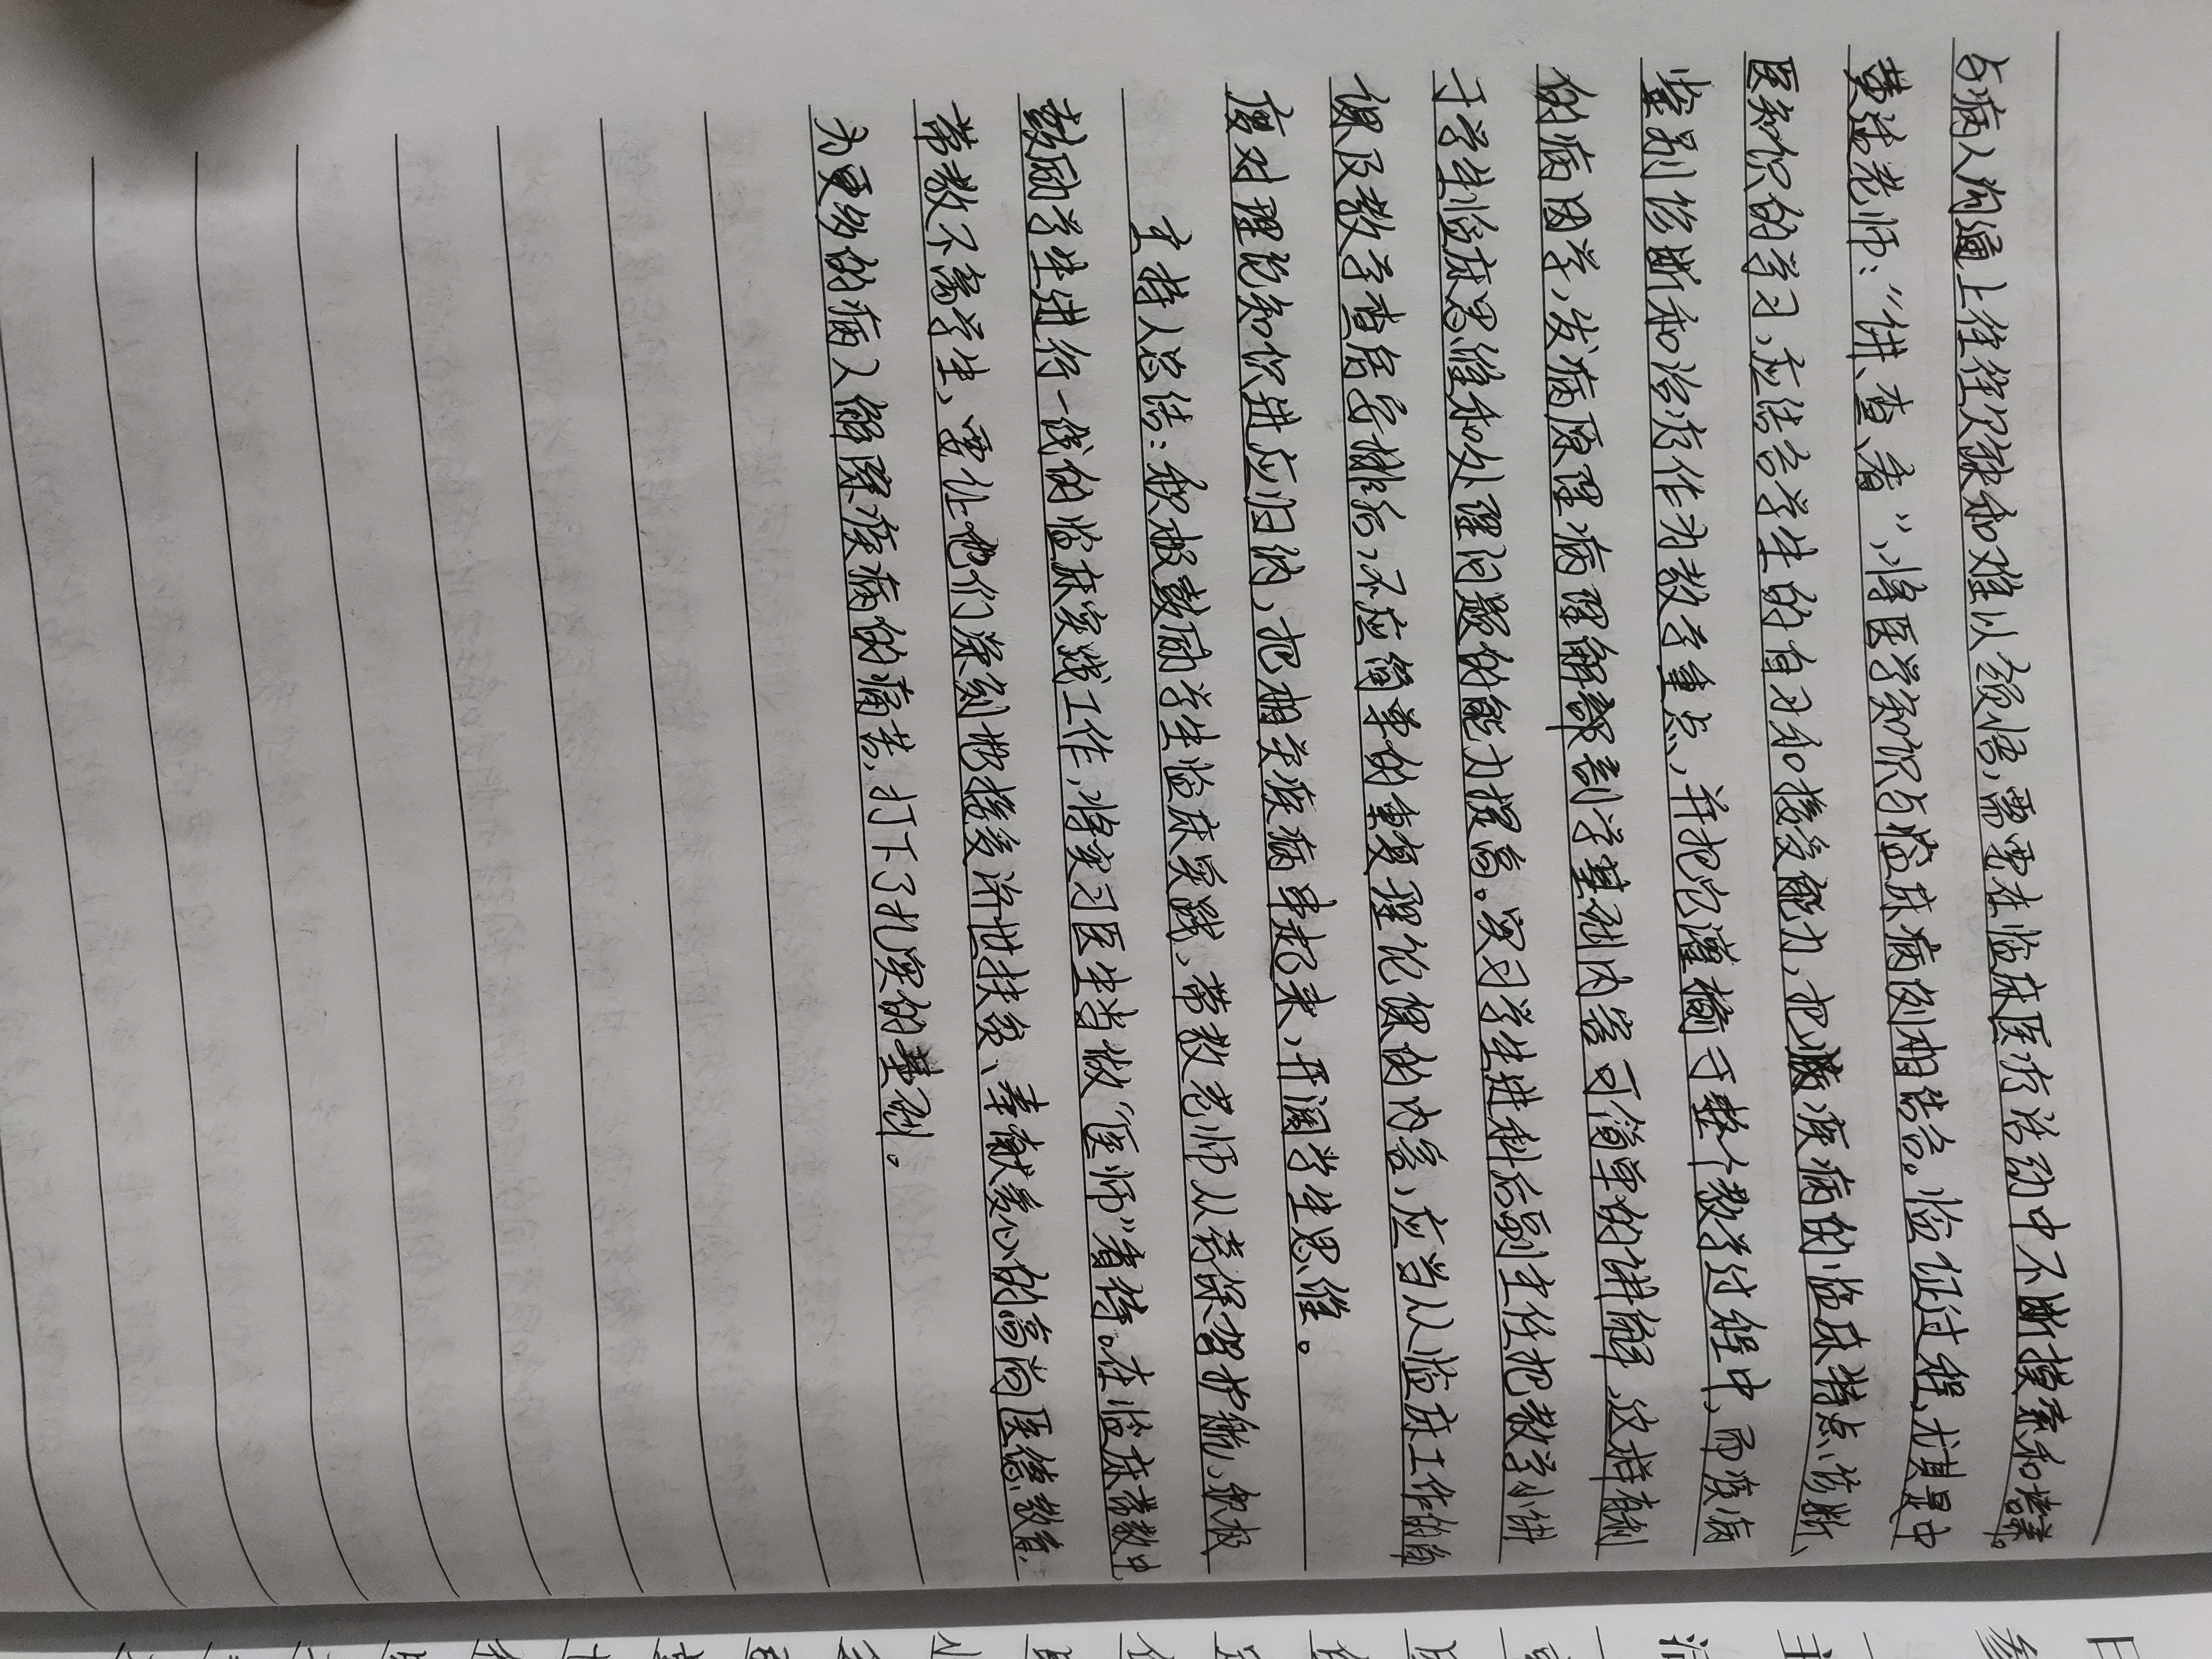 与病人沟通上往往欠缺和难以领悟,需要在临床医疗活动中不断摸索和培养。
黄选老师:"讲、查、看",将医学知识与临床病例相结合。验证过程,尤其是中
医知识的学习,应结合学生的自习和接受能力,把疾病的临床特点、诊断、
鉴别诊断和治疗作为教学重点,并把它灌输于整个教学过程中,而疾病
的病因学,发病原理病理解剖学基础内容可简单的讲解,这样有利
于学生临床思维和处理问题的能力提高。实习学生进科后副主任把教学小讲
课及教学查房安排好,不应简单的重复理论课的内容,应当从临床工作的角
度对理论知识进应归纳,把相关疾病串起来,开阔学生思维。
主持人总结:积极鼓励学生临床实践,带教老师从旁保驾护航,积极
鼓励学生进行一线的临床实践工作,将实习医生当做"医师"看待。在临床带教中
带教不离学生,要让他们深刻地接受济世扶贫、奉献爱心的高尚医德教育,
为更多的病人解除疾病的痛苦,打下了扎实的基础。